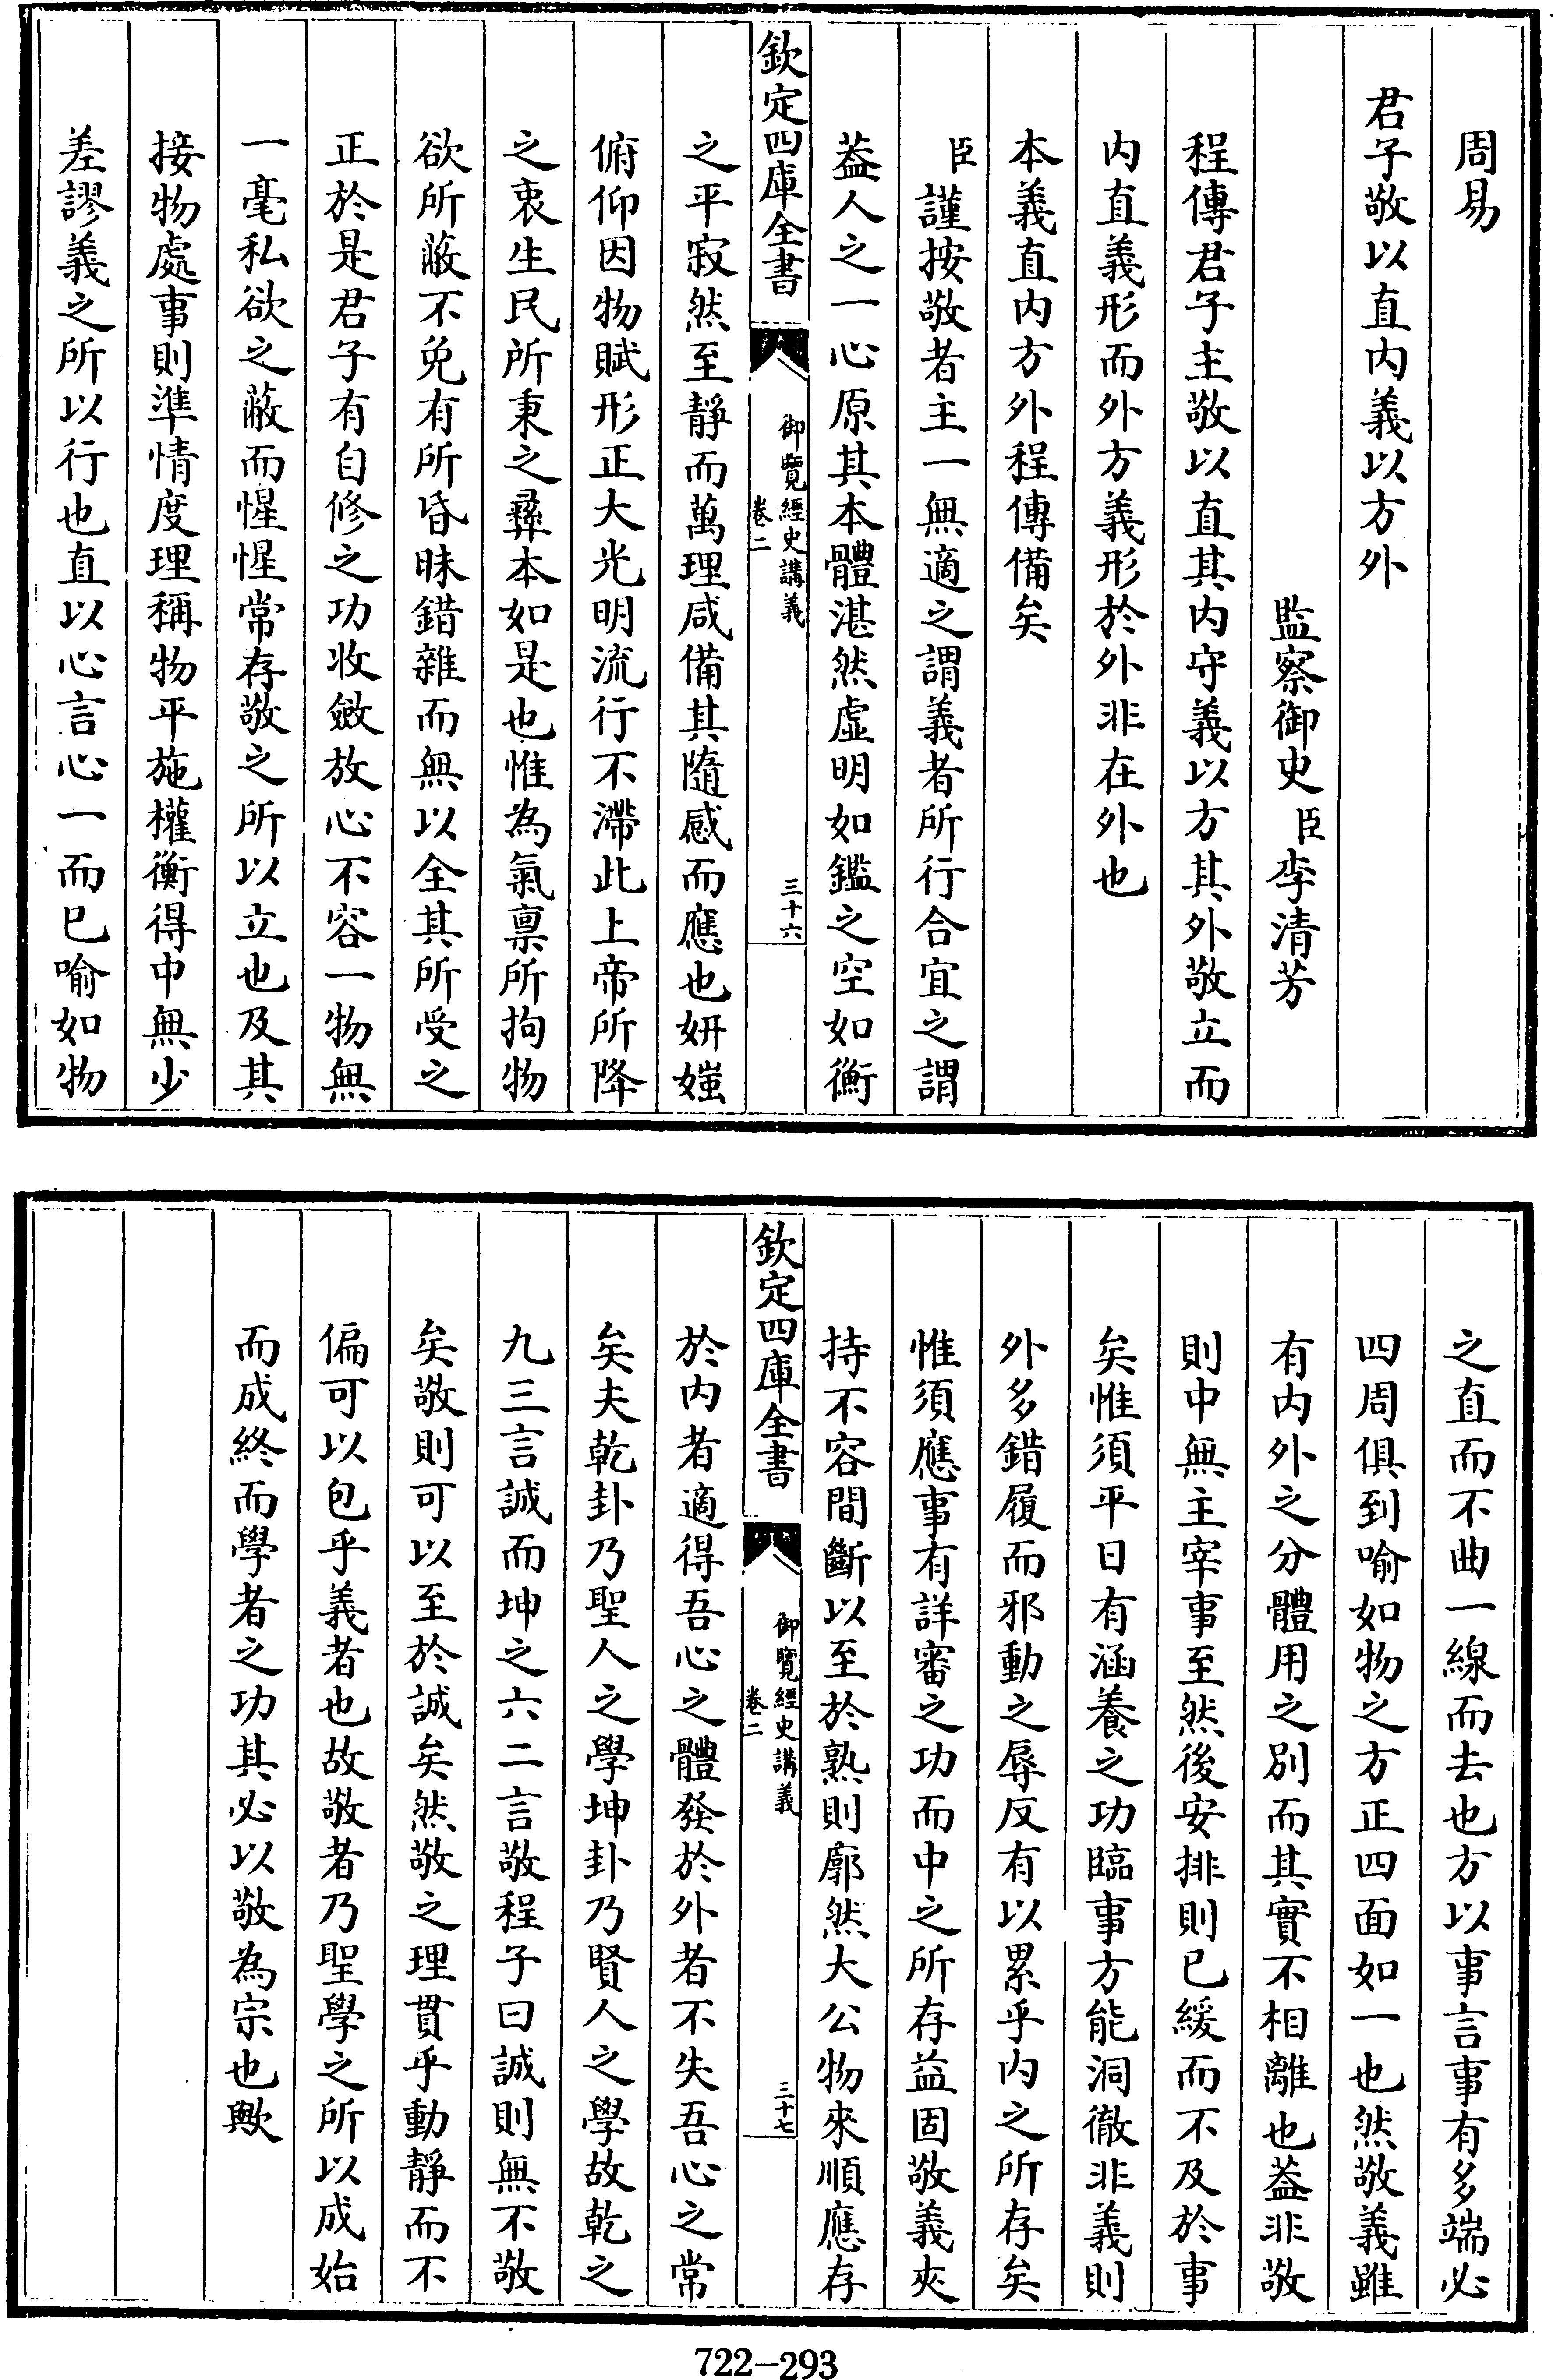 周易
君子敬以直内義以方外
監察御史臣李清芳
程傳君子主敬以直其内守義以方其外敬立而
内直義形而外方義形於外非在外也
本義直内方外程傳備矣
臣謹按敬者主一無適之謂義者所行合宜之謂
葢人之一心原其本體湛然虚明如鑑之空如衡
欽定四庫全書
御覽經史講義
卷二
三十六
之平寂然至靜而萬理咸備其隨感而應也妍媸
俯仰因物賦形正大光明流行不滯此上帝所降
之衷生民所秉之彝本如是也惟為氣禀所拘物
欲所蔽不免有所昏昧錯雜而無以全其所受之
正於是君子有自修之功收斂放心不容一物無
一毫私欲之蔽而惺惺常存敬之所以立也及其
接物處事則準情度理稱物平施權衡得中無少
差謬義之所以行也直以心言心一而已喻如物
之直而不曲一線而去也方以事言事有多端必
四周俱到喻如物之方正四面如一也然敬義雖
有内外之分體用之别而其實不相離也葢非敬
則中無主宰事至然後安排則已緩而不及於事
矣惟須平日有涵養之功臨事方能洞徹非義則
外多錯履而邪動之辱反有以累乎内之所存矣
惟須應事有詳審之功而中之所存益固敬義夾
持不容間斷以至於熟則廓然大公物來順應存
欽定四庫全書
御覽經史講義
卷二
三十七
於内者適得吾心之體發於外者不失吾心之常
矣夫乾卦乃聖人之學坤卦乃賢人之學故乾之
九三言誠而坤之六二言敬程子曰誠則無不敬
矣敬則可以至於誠矣然敬之理貫乎動靜而不
偏可以包乎義者也故敬者乃聖學之所以成始
而成終而學者之功其必以敬為宗也歟
722-293